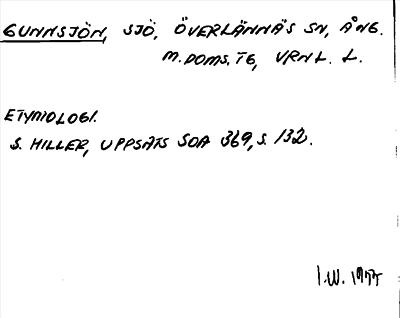 GUNNSJÖN, SJÖ, ÖVERLÄNNÄS SN, ÅNG.
M. DOMS. TG, VRNL. L.
ETYMOLOGI.
S. HILLER, UPPSATS SOA 369, S. 132.
I.W. 1977